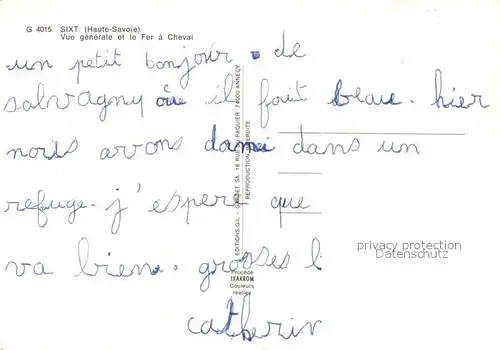 G 4015 SIXT (Haute-Savoie)
Vue générale et le Fer à Cheval
un petit bonjour de
salvagny où il fait beau. hier
nous avons dans un
refuge. j'esper que
va bien. grosses
catherin
EDITIONS GIL - 16 RUE PAQUIER 74000 ANNECY
REPRODUCTION INTERDITE
Procédé
LXAKROM
Couleurs
réelles
privacy protection
Datenschutz